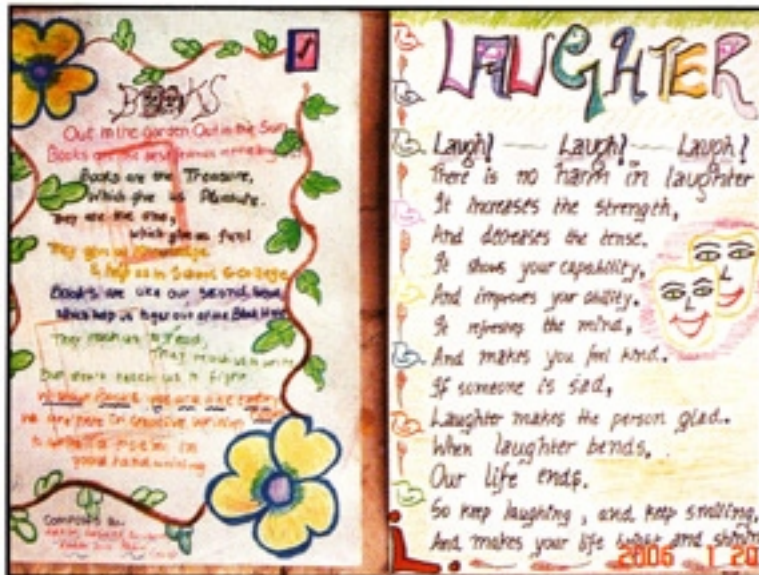 BOOKS
Out in the Garden Out in the Sun
Books are the best friends
Books are the Treasure,
Which give us Pleasure.
They are the one,
which give us fun!
They give us knowledge
& help us in School & college
Books are like our second
Which help us to get out of the Black
They teach us to read,
They teach us to write
But don't teach us to fight
we are here in creative writing
to write a poem in
good handwriting
LAUGHTER
Laugh! Laugh! Laugh!
There is no harm in laughter
It increases the strength,
And decreases the tense.
It shows your capability,
And improves your ability.
It refreshes the mind,
And makes you feel kind.
If someone is sad,
Laughter makes the person glad.
When laughter bends,
Our life ends.
So keep laughing, and keep smiling,
And makes your life bright and
2006 1 20